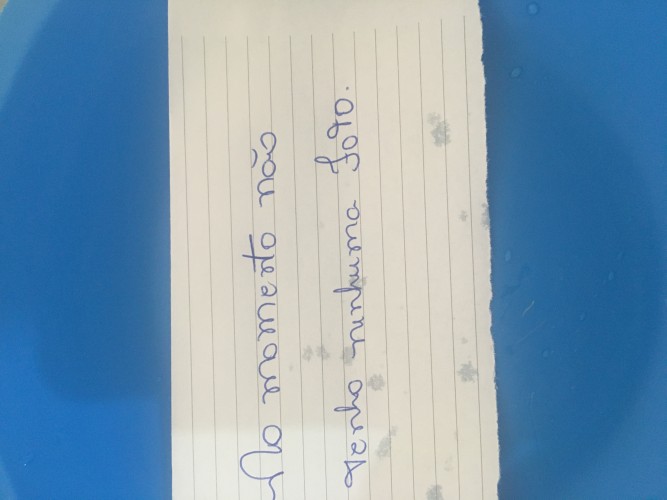 No momento não
tenho ninhuma foto.